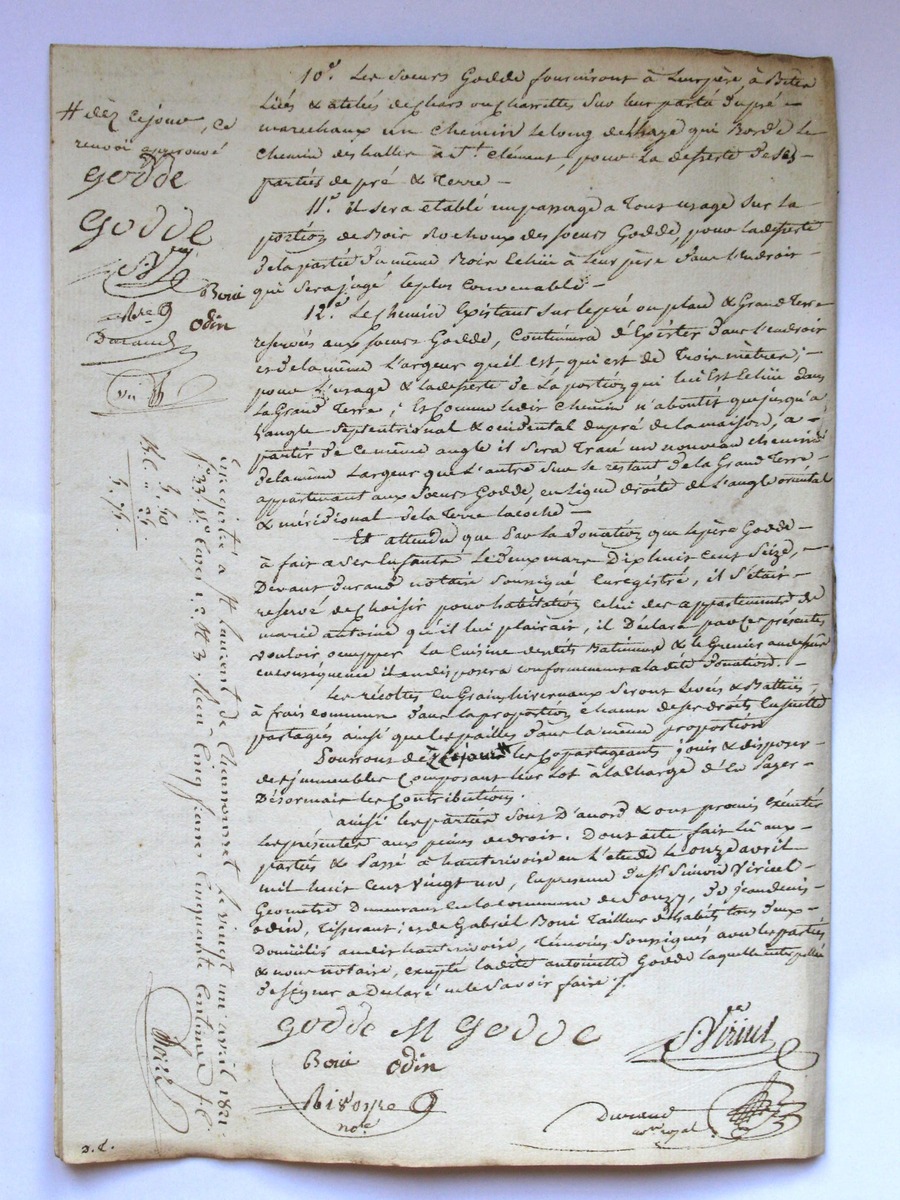 10°. Les soeurs Godde fourniront à leur père, à Bêtes
Liées & atelées de chars ou charrettes sur leur parti du pré
marechaux un chemin le long de la haye qui Borde le
chemin des halles à St. Clément, pour la desserte de ses
parties de pré & Terre
11°. il sera établé un passage a Tous usage sur la
portion de Bois Rochoux des soeurs Godde, pour la desserte
de la partie du même Bois Echüe à leur père dans l'endroit
qui sera jugé le plus Convenable.
12°. Le chemin Existant sur le pré ou plan & Grand Terre
reservés aux soeurs Godde, Continuera d'Exister dans l'endroit
et de la même Largeur qu'il est, qui est de Trois mètres,
pour L'usage & la desserte de la portion qui lui Est Echüe dans
la Grand Terre; Et comme ledit Chemin n'aboutit que jusqu'a
l'angle septentrional & occidental du pré de la maison, a
partir de ce même angle il sera Tracé un nouveau chemin
de la même Largeur que l'autre sur le restant de la Grand Terre
appartenant aux soeurs Godde en ligne droite de L'angle oriental
& méridional de la Terre
Et attendu que Par la Donation que le père Godde
à fait a ses Enfants le deux mars Dix huit Cent Seize,
Devant Durand notaire Soussigné Enregistré, il s'était
reservé de Choisir pour habitation celui des appartements de
marie antoine qu'il lui plairait, il Déclare par Ces présentes
vouloir occupper La Cuisine desdits Batiments & le Grenier audessus
en conséquence il en disposera conformement à ladite Donation.
Les récoltes En Grains hivernaux seront Levées & Battües
à frais communs dans la proportion chacun de ses droits
partages ainsi que les pailles dans la même proportion
Pourront dèz Cejour # les Copartageants jouir & disposer
des jmmeubles Composant leur Lot à la Charge d'En Payer
Désormais les Contributions.
ainsi les parties sont D'accord & ont promis Exécuter
les présentes aux peines de droit. Dont acte fait lû aux
parties & Passé à hauterivoire en l'étude le onze avril
mil huit Cent vingt un, En présence du Sr. Simon Viricel
Geometre Demeurant En la commune de Souzy, de jean denis
odin, Tisserant; et de Gabriël Boni Tailleur d'habits tous deux
Domiciliés audit hauterivoire, Témoins Soussignés avec les parties
& nous notaire, excepté ladite antoinette Godde laquelle interpellée
de signer a Déclaré ne le Savoir faire /.
Godde M Godde
S. Viricel
Boni odin
Rivoyre
noe.
Durand
nre royal
# dèz Cejour, Ce
renvoi approuvé
Godde
Godde
SV
Boni
odin
Durand
Vu
5. 50
55
Enregistré à St laurent de Chamousset le vingt un avril 1821.
fo. 33 Vo. Cases 1. 2. & 3. Reçu Cinq francs Cinquante Centimes
2. d.